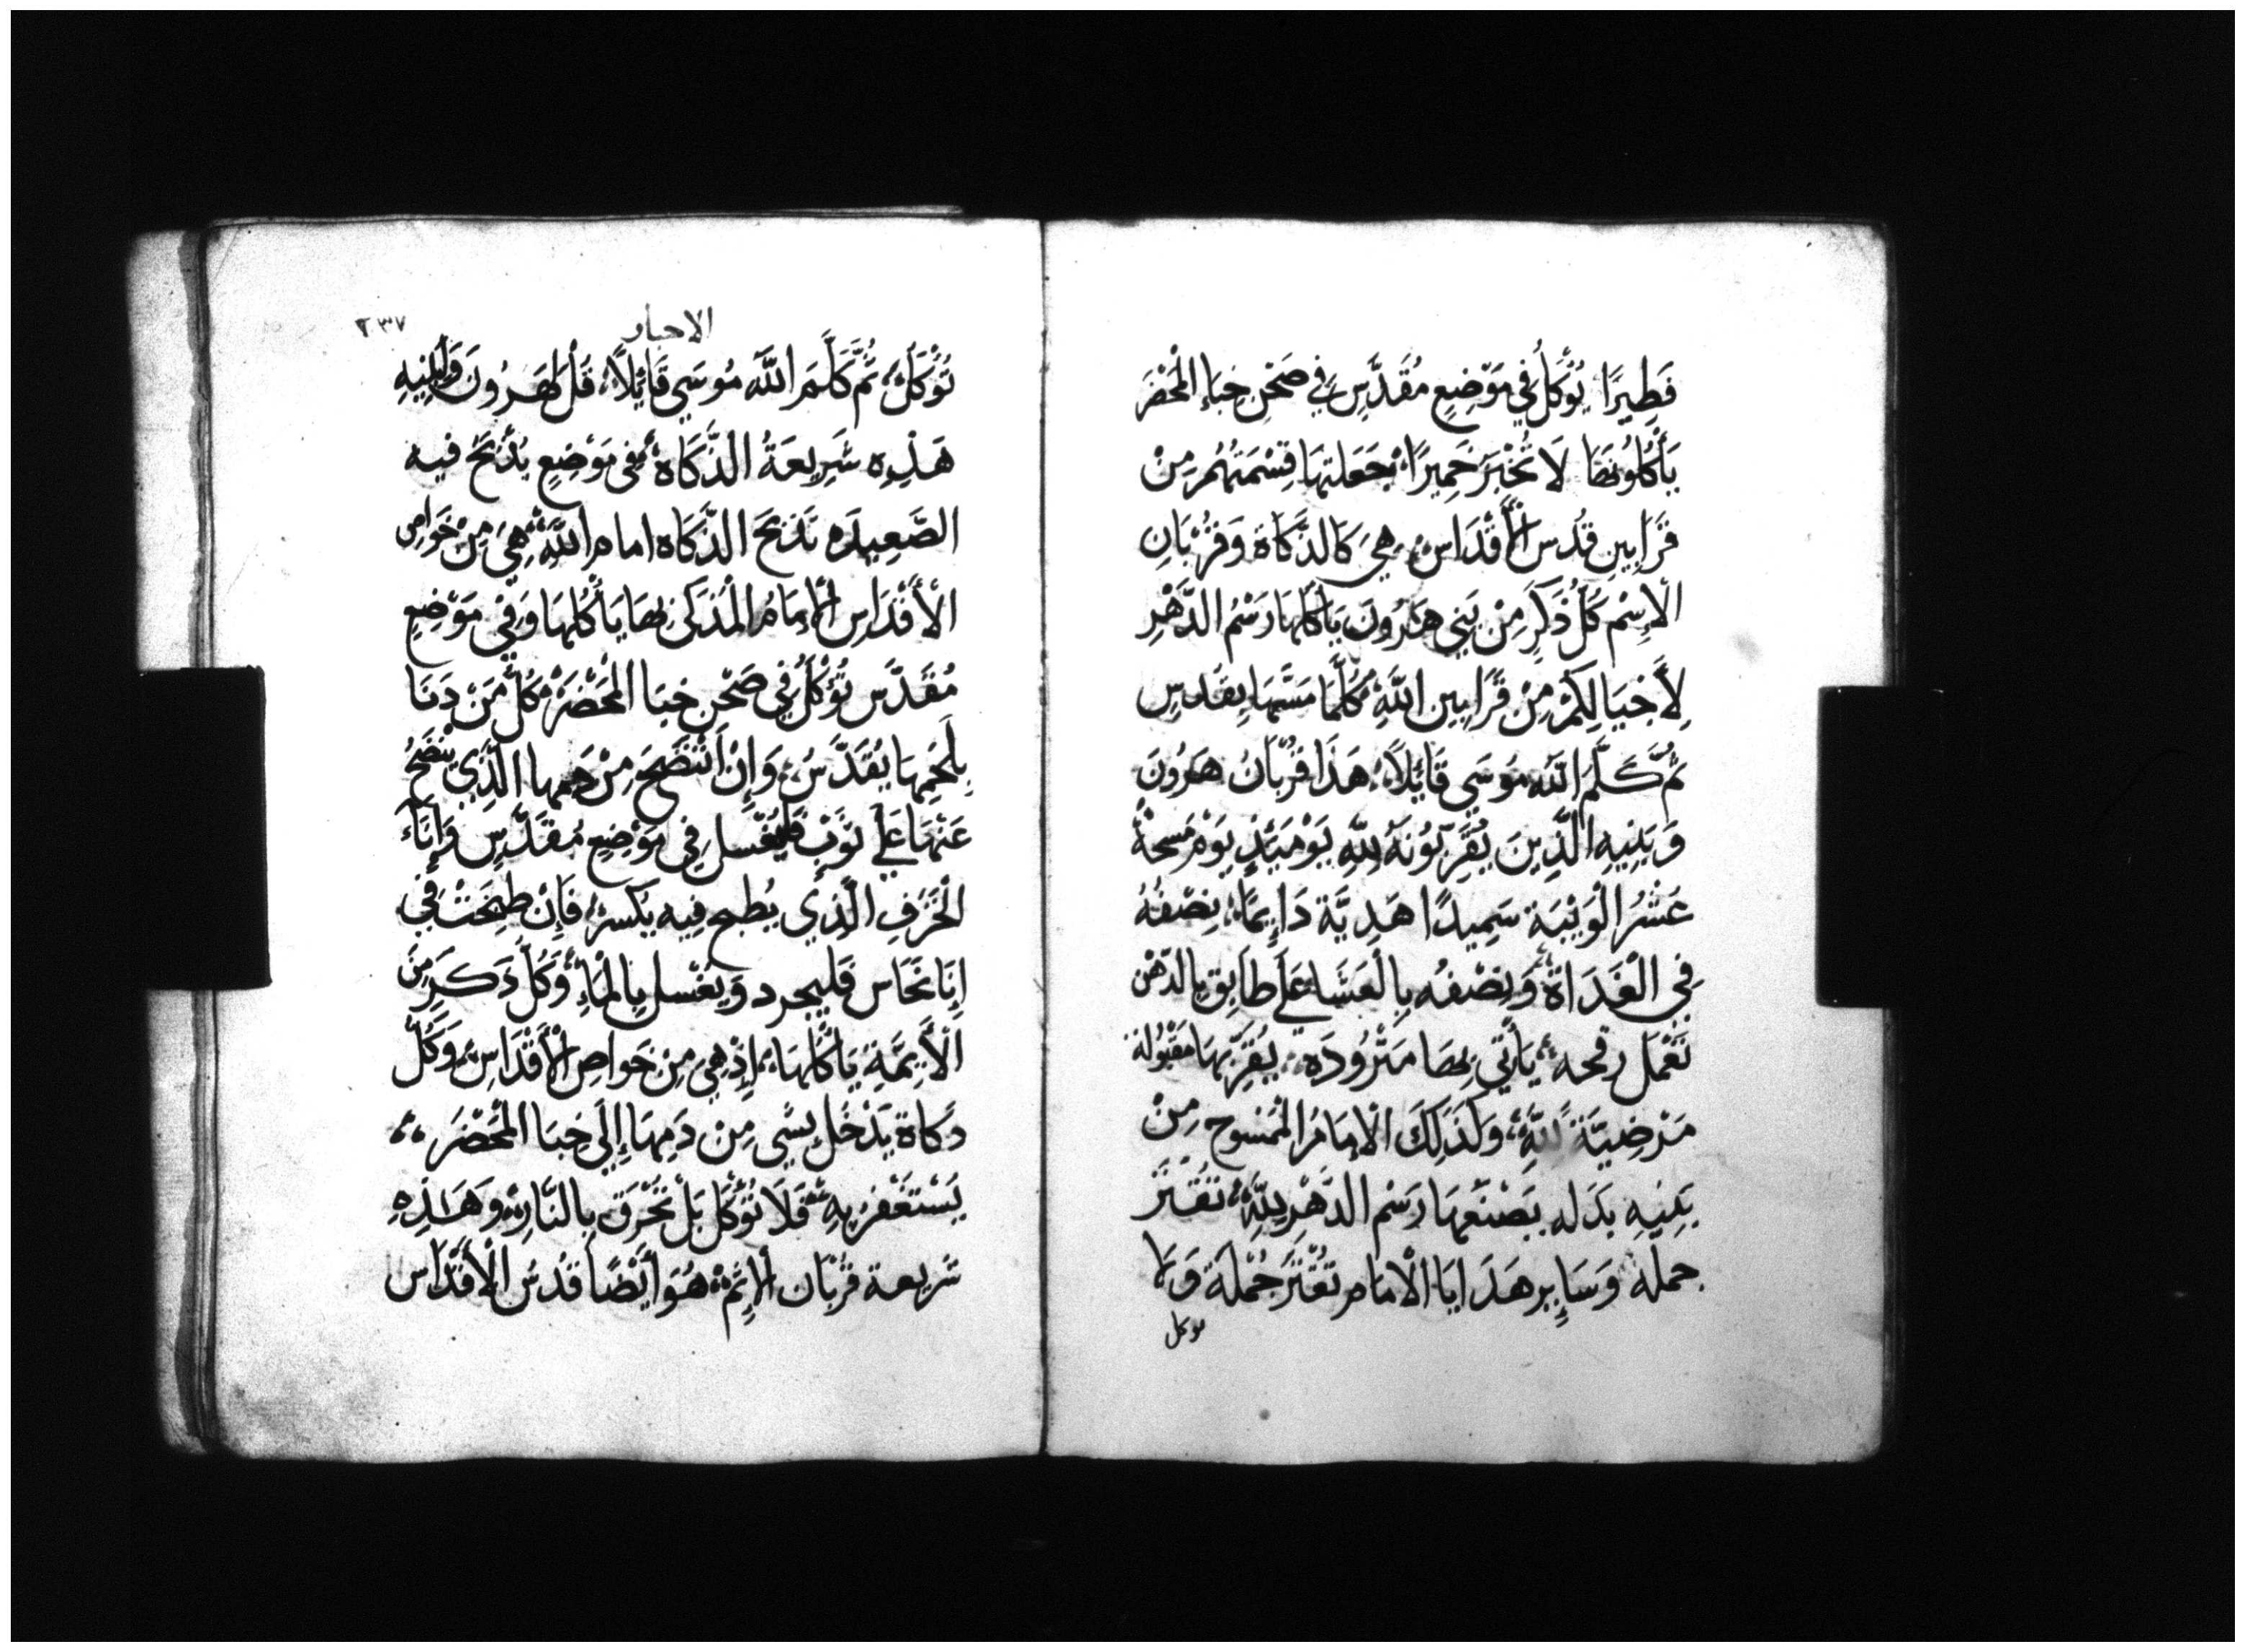 فَطِيرًا يُؤْكَلُ فِي مَوْضِعٍ مُقَدَّسٍ فِي صَحْنِ خِبَاءِ الْمَحْضَرِ
يَأْكُلُونَهَا لَا تُخْبَزُ خَمِيرًا جَعَلتهَا قِسْمَتَهُمْ مِنْ
قَرَابِينِ قُدس الْأَقْدَاسِ هِيَ كَالذَّكَاةِ وَقُرْبَانِ
الْإِسْمِ كُلُّ ذَكَرٍ مِنْ بَنِي هَرُونَ يَأْكُلهَا رَسْمُ الدَّهْرِ
لِأَجْيَالِكُمْ مِنْ قَرَابِينِ اللَّهِ كُلَّمَا مَسَّهَا يقدس
ثُمَّ كَلَّمَ اللَّه مُوسَي قَائِلًا هَذَا قُرْبَانُ هَرُونَ
وَبَنِيهِ الَّذِينَ يُقَرِّبُونَهُ لِلَّهِ يَوْمَئِذٍ يَوْم مَسحَةْ
عَشْرُ الْوَيْبَة سَمِيدًا هَدِيَّة دَايِمًا نِصْفُهُ
فِي الْغَدَاةِ وَنِصْفُه بِالْعَشَا عَلَى طَابِق بِالدّهْن
تَعْمَل يَأْتِي بِهَا مَثْرُودَه يُقَرِّبهَا مَقْبُولة
مَرْضِيَّةً لِلَّهِ وَكَذَلِكَ الْإمَامُ الْمَمْسُوح مِنْ
بَنِيهِ بَدَله يَصْنَعُهَا رَسْم الدَّهْرِ لِلَّهِ تُقَتَّرَ
جمله وَسَايِر هَدَايَا الْامَام تُقْتَرُ جُمْلَة وَلَا
توكل
الاحبار
٢٣٧
تُؤْكَلْ ثُمَّ كَلَّمَ اللَّه مُوسَي قَائِلًا قُلْ لِهَرُونَ وَلِبَنِيهِ
هَذِهِ شَرِيعَةُ الذَّكَاه فِي مَوْضِعٍ يُذْبَحُ فيه
الصَّعِيدَه تذبَح الذَّكَاه امام اللَّهِ هِيَ مِنْ خَوَاصِ
الْأَقْدَاسِ الْإِمَامُ الْمُذكى بِهَا يَأْكُلهَا وَفِي مَوْضِعٍ
مُقَدَّسٍ تُؤْكَلُ فِي صَحْنِ خبَا الْمَحْضَرْ كُلُّ مَنْ دَنَا
بِلَحْمِهَا يُقَدَّسُ وَإِنْ انْتَضَحَ مِنْ دَمِهَا الَّذِي يَنْضَحُ
عَنْهَا عَلَى ثَوْبٍ فَليُغْسَل فِي مَوْضِعٍ مُقَدَّسٍ وَإِنَآءَ
الْخَزَفِ الَّذِي يُطبخ فِيه يُكسر فَإِنْ طبِخَتْ فِي
إِنَا نُحَاس فَليُجرد وَيُغْسل بِالْمَاءِ وَكُلُّ ذَكَرٍ مِنَ
الْأَئِمَّةِ يَأْكُلهَا إِذْ هِيَ مِنْ خَواصِ الْأَقْدَاسِ وَكُلُّ
ذَكَاةٍ يَدْخُلُ بِشَي مِنْ دَمِهَا إِلَي خِبَا الْمَحْضَرَ
يَسْتَغْفِرُ بِهِ فَلَا تُؤْكَل بَلْ تُحْرَق بِالنَّارِ وَهَذِهِ
شَرِيعة قُرْبَان الْإِثْمِ هُوَ أَيْضًا قُدْسُ الْأَقْدَاس